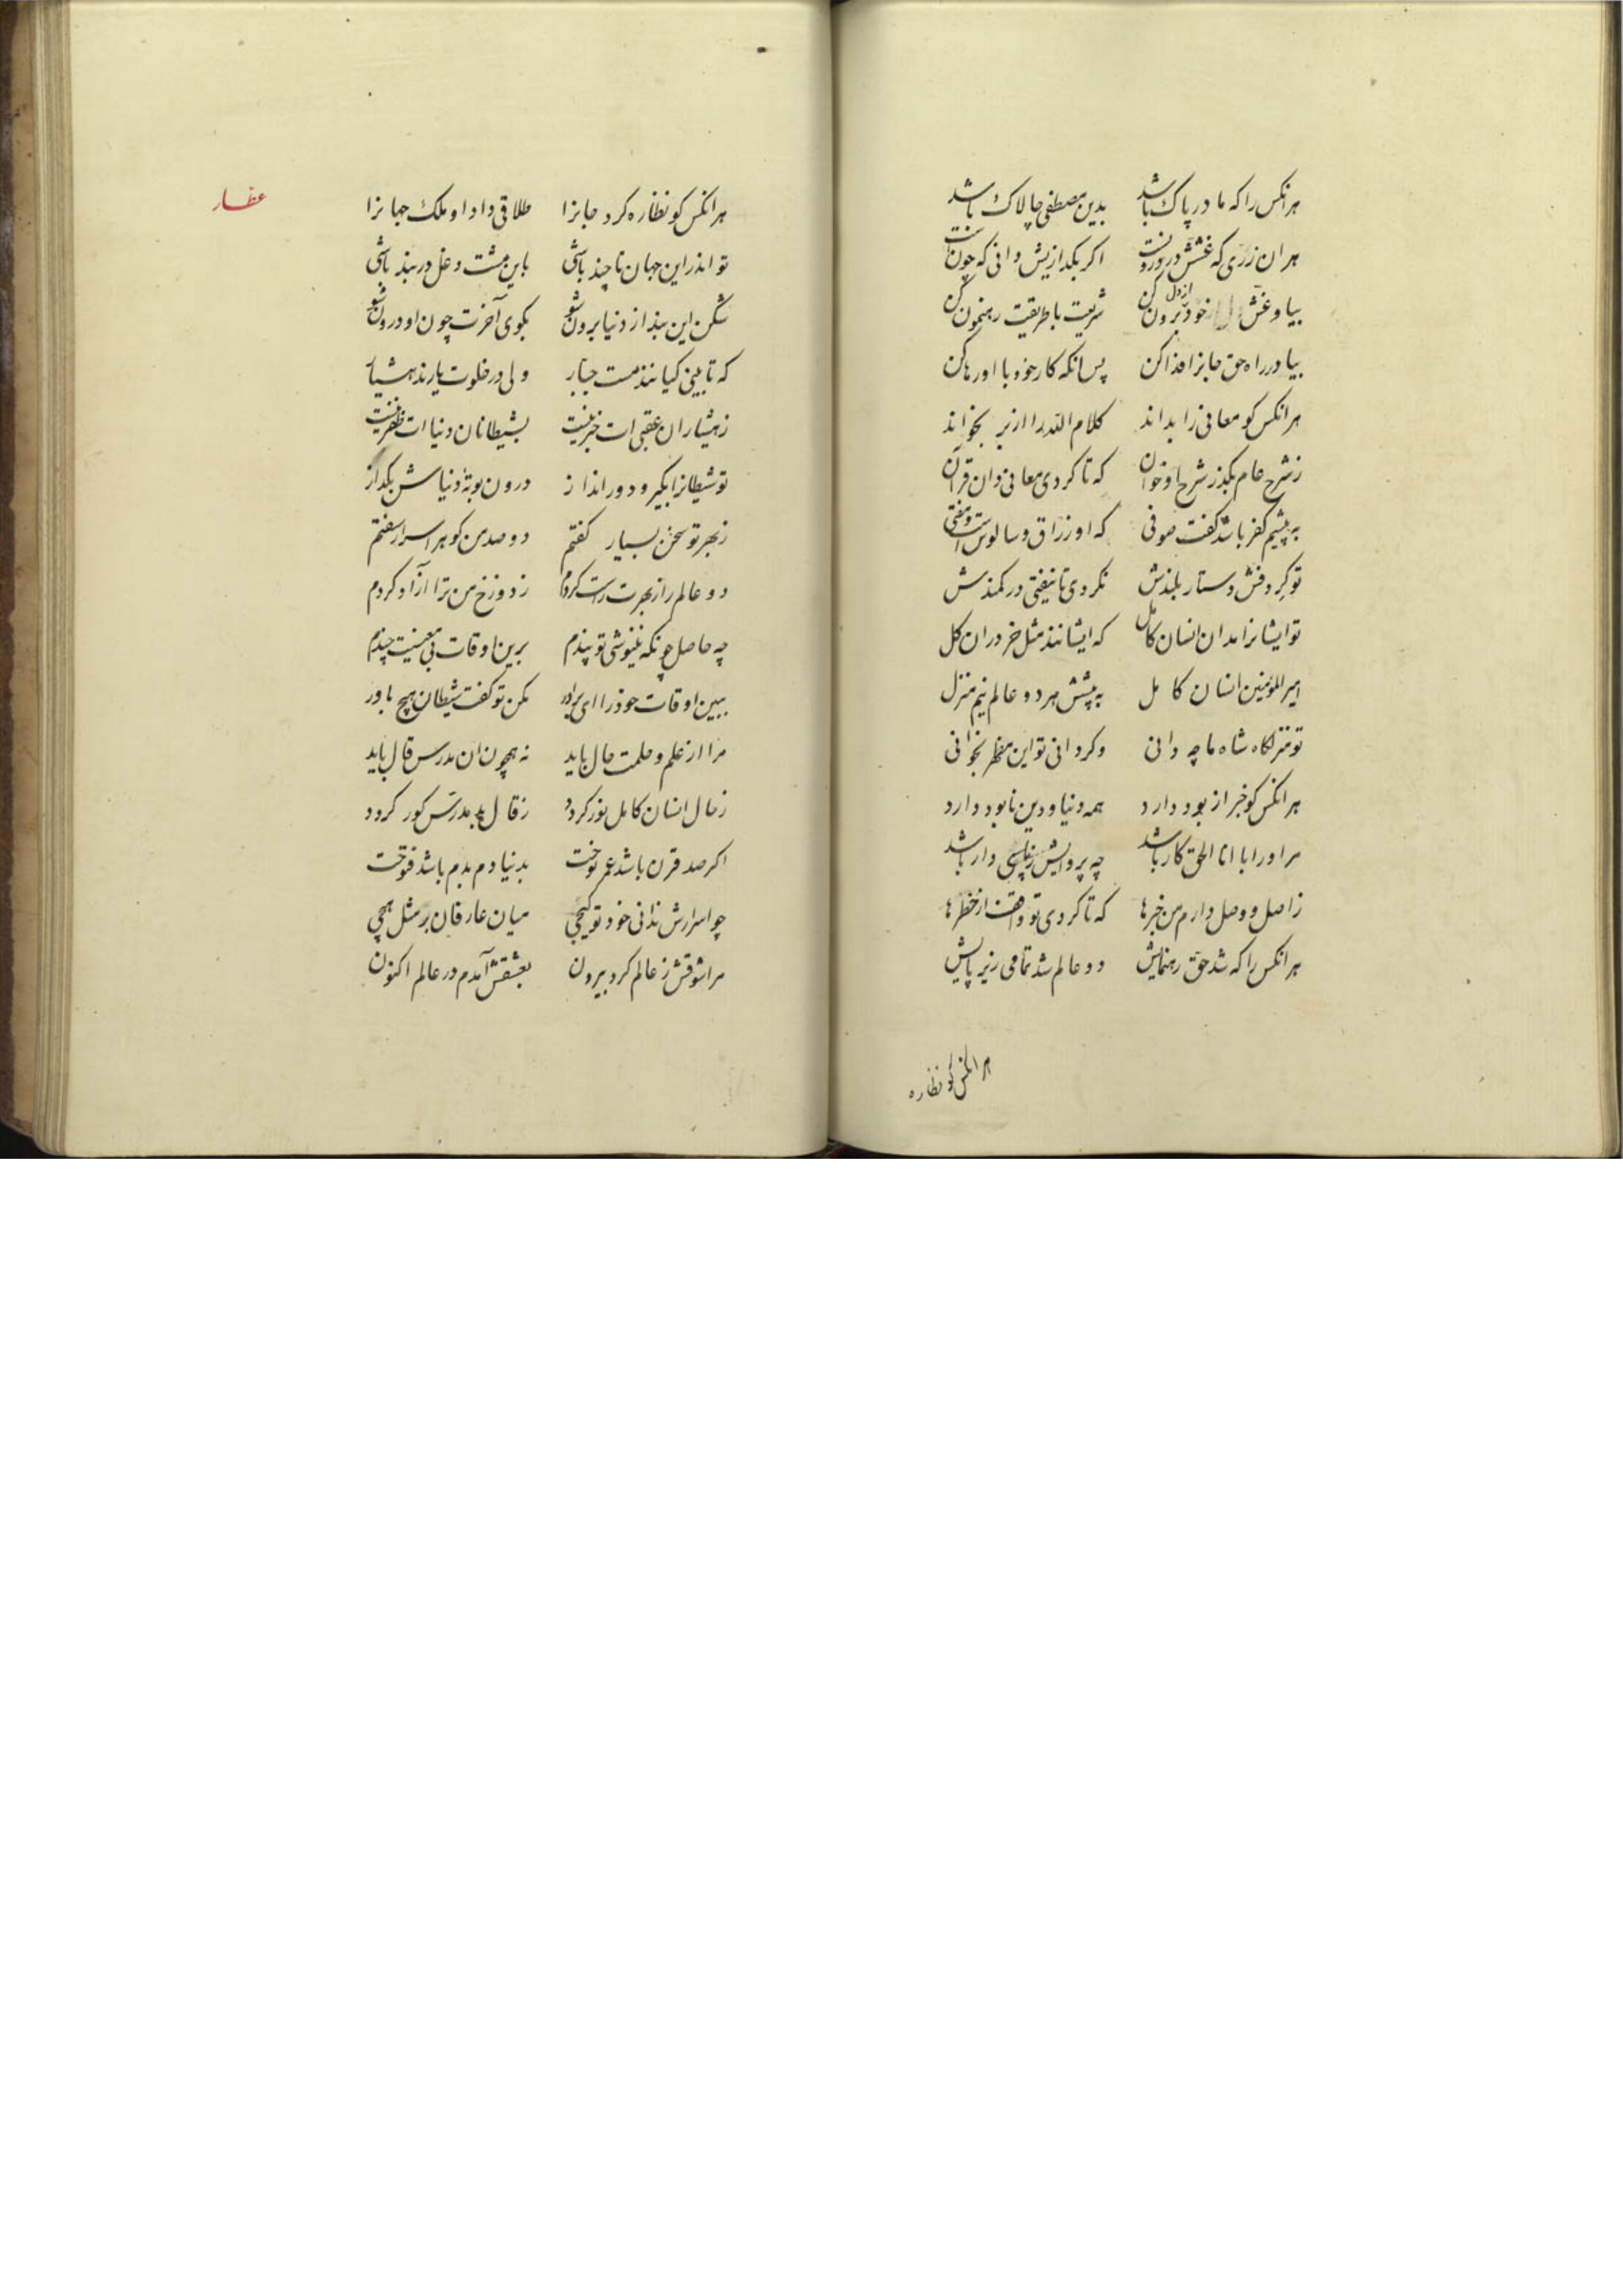 هر انکس را که مادر پاک باشد بدین مصطفی چالاک باشد
هر ان زری که غشش در درونست اکر بکدازیش دانی که چونست
بیا و غش از دل خود برون کن شریعت با طریقت رهنمون کن
بیا در راه حق جانرا فدا کن پس انکه کار خود با او رها کن
هر انکس کو معانی را بداند کلام الله را از بر بخواند
ز شرح عام بکذر شرح او خوان که تا کردی معانی دان قرآن
به پیشم کفر باشد گفت صوفی که او زراق و سالوس است و
تو کر و فش و دستار بلندش نکردی تا نیفتی در کمندش
تو ایشانرا مدان انسان کامل که ایشانند مثل خر در ان کل
امیرالمؤمنین انسان کامل به پیشش هر دو عالم نیم منزل
تو منزلکاه شاه ما چه دانی وکر دانی تو این مظهر بخوانی
هر انکس کو خبر از بود دارد همه دنیا و دین نابود دارد
مر اورا با انا الحق کار باشد چه پروایش ز دار باشد
ز اصل و وصل دارم من خبرها که تا کردی تو واقف از خطرها
هر انکس را که شد حق رهنمایش دو عالم شد تمامی زیر پایش
هر انکس کو نظاره
عطار
هر انکس کو نظاره کرد جانرا طلاقی داد او ملک جهانرا
تو اندر این جهان تا چند باشی باین مشت و غل در بند باشی
شکن این بند از دنیا برون شو بکوی آخرت چون او درون شو
که تا بینی کیانند مست جبار ولی در خلوت یارند هشیار
ز هشیاران عقبی ات خبر نیست بشیطانان دنیا ات ظفر نیست
تو شیطانرا بکیر و دور انداز درون بوتهٔ دنیاش بکداز
ز بهر تو سخن بسیار کفتم دو صد من کوهر اسرار سفتم
دو عالم را ز بهرت راست کردم ز دوزخ من ترا آزاد کردم
چه حاصل چونکه ننیوشی تو پندم برین اوقات بی معنیت چندم
ببین اوقات خود را ای برادر مکن تو کفت شیطان هیچ باور
مرا از علم و حلمت حال باید نه همچون ان مدرس قال باید
ز حال انسان کامل نور کردد ز قال بد مدرس کور کردد
اکر صد قرن باشد عمر نوحت بدنیا دم بدم باشد فتوحت
چو اسرارش ندانی خود تو کیجی میان عارفان بر مثل هیچی
مرا شوقش ز عالم کرد بیرون بعشقش آمدم در عالم اکنون